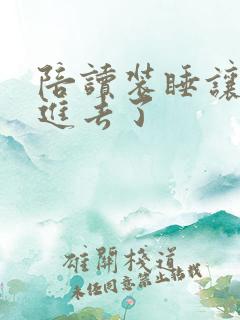 陪讀裝睡讓
進去了
雄關棧道
未經同意禁止轉載